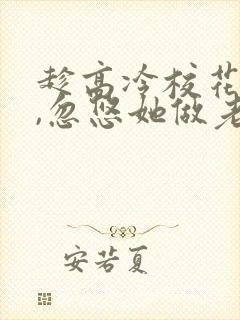 趁高冷校花
,忽悠她做老
安若夏